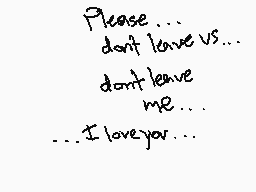 Please...
dont leave us...
dont leave
me...
...I love you...